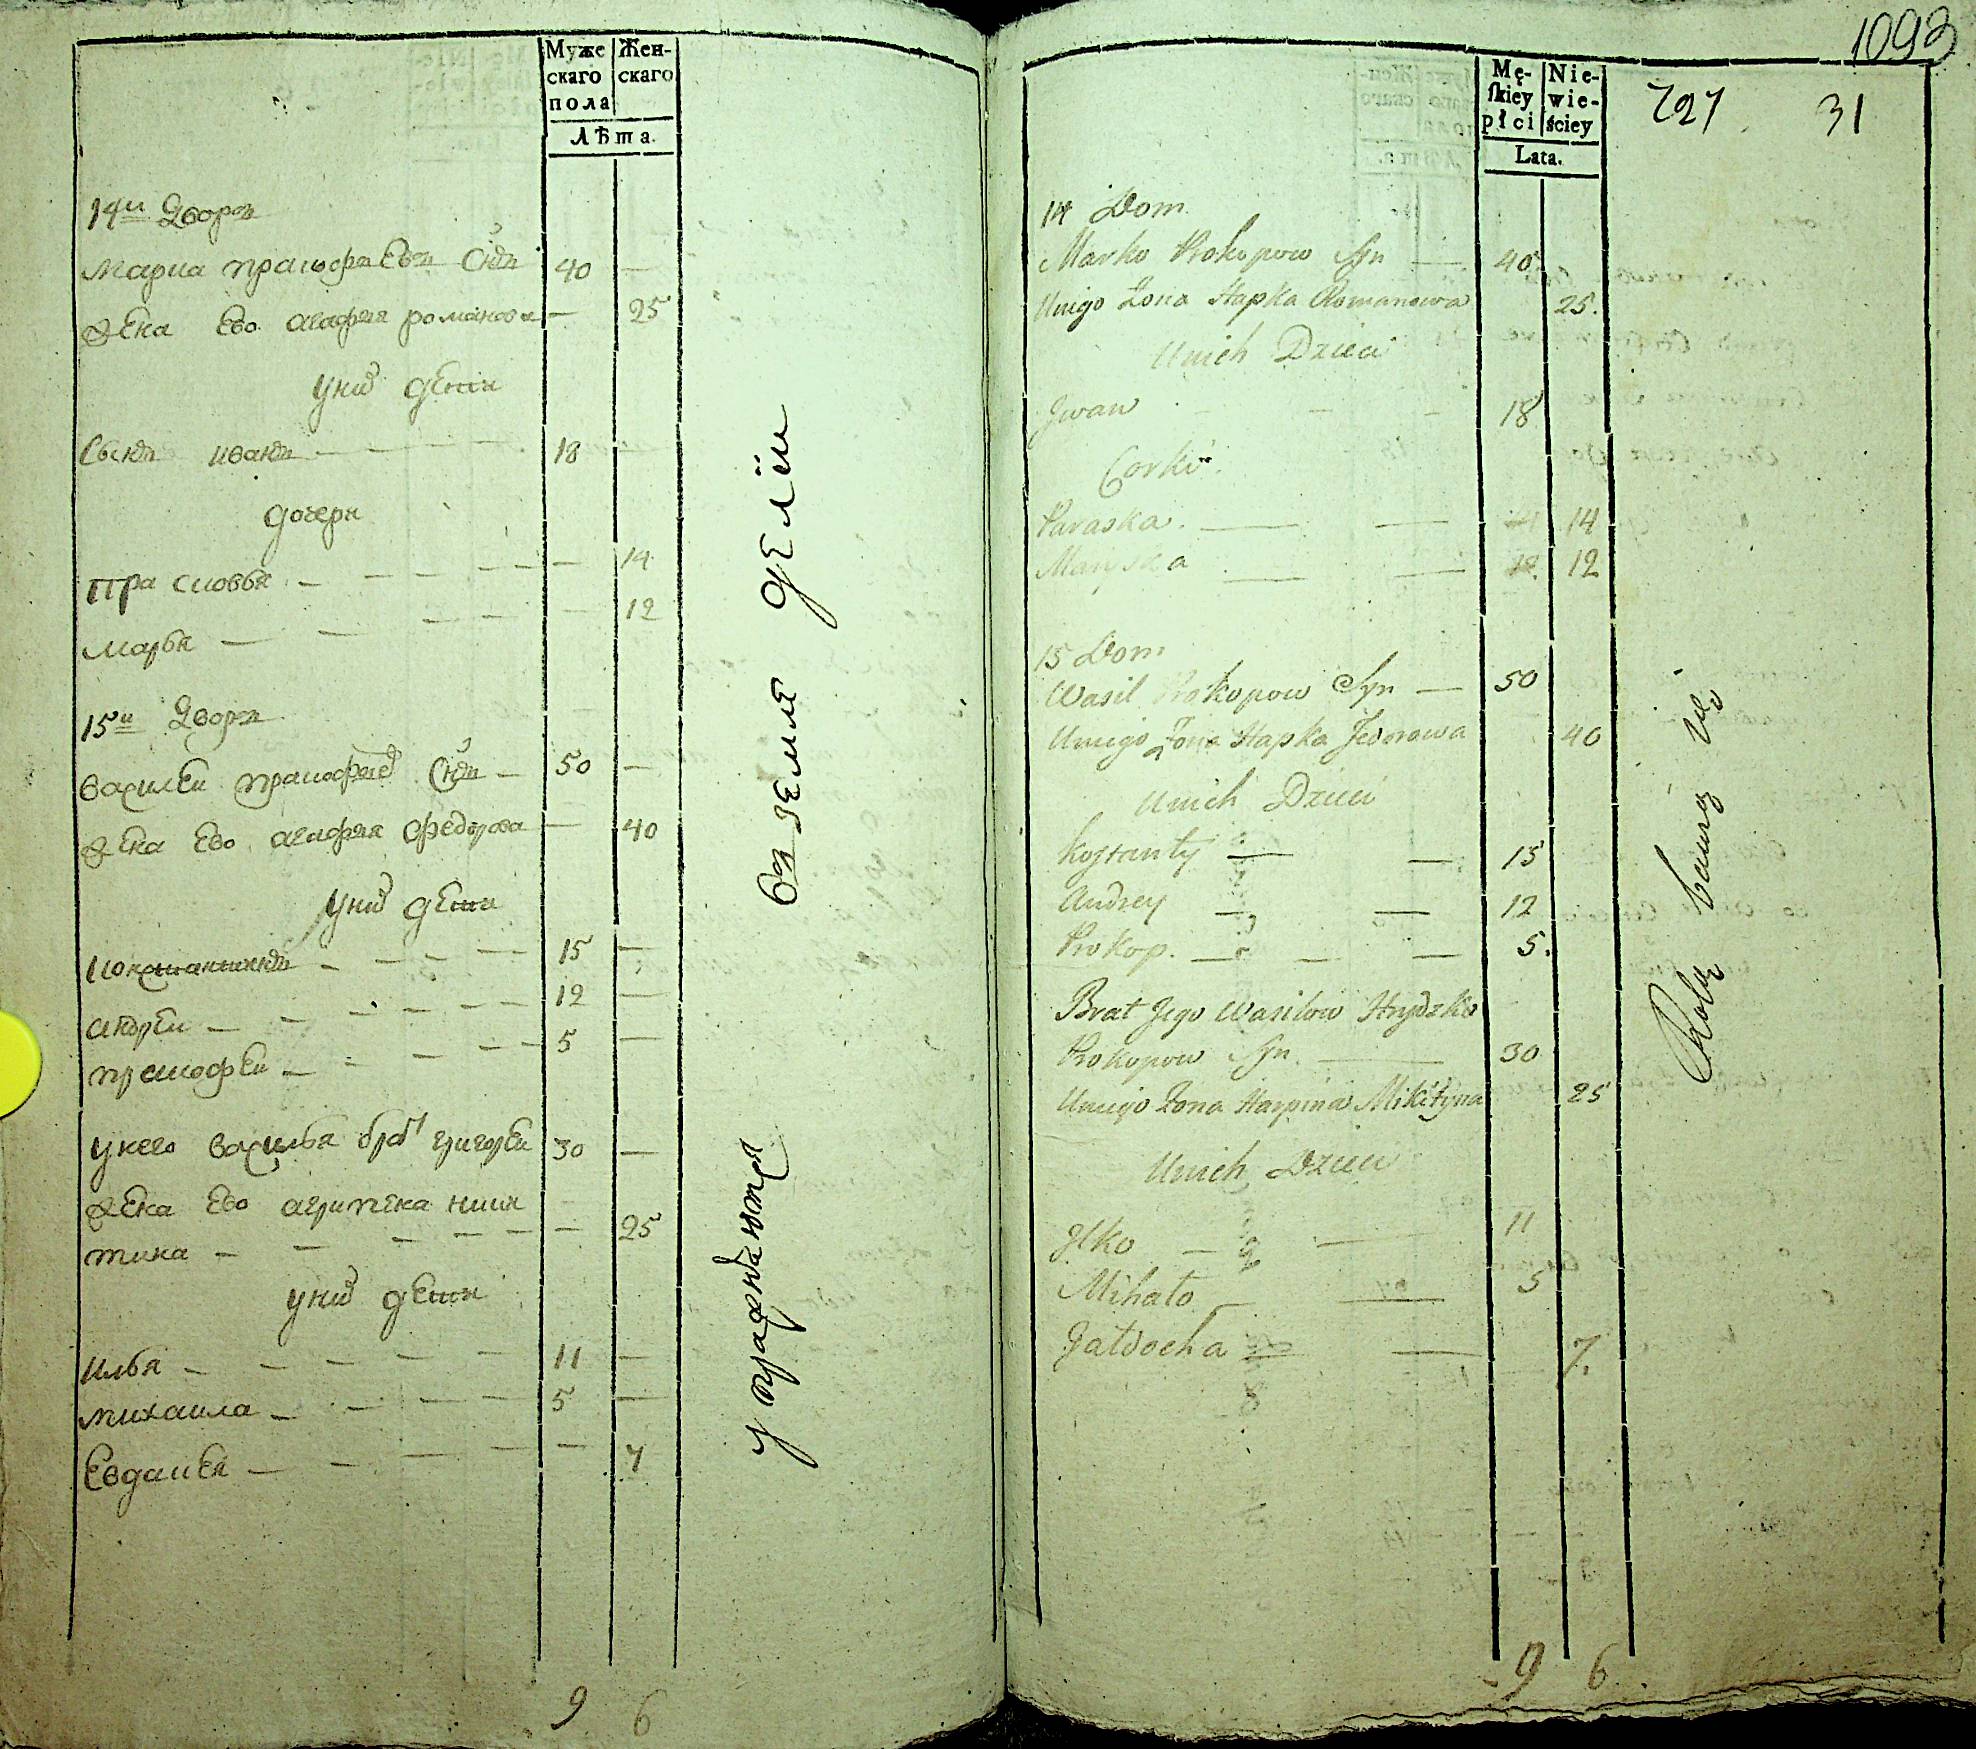 Муже
скаго
пола
Жен-
скаго
Лѣта.
14й Дворъ
Марка Пракофьевъ Снъ 40 —
Жена Ево агафия романова — 25
у них дети
Сынъ иванъ — 18
дочери
Прасковья — — 14
марья — — 12
15й Дворъ
Василей Пракофьев Снъ — 50 —
Жена Ево агафия Федорова — 40
у них дети
Констянтинъ — 15 —
андрей — 12 —
пракофей — 5 —
у него василья брат григорей 30 —
Жена Ево агрипена ники
тина — — 25
у них дети
илья — 11 —
михаила — 5 —
Евдакея — — 7
9 6
упражняются
в земле делїи
1093
Mę-
ſkiey
płci
Nie-
wie-
ściey
Lata.
727 31
14 Dom
Marko Prokopow Syn — 40
Uniego Zona Hapka Romanowa 25.
Unich Dzieci
Jwan — 18
Corki
Paraska. — 14
Maryska — 12
15 Dom
Wasil Prokopow Syn — 50
Uniego Zona Hapka Fedorowa 40
Unich Dzieci
Kostanty — 15
Andrey — 12
Prokop. — 5.
Brat Jego Wasilow Hrydzko
Prokopow Syn. — 30
Uniego Zona Harpina Mikityna 25
Unich Dzieci
Jlko — 11
Mihało — 5
Jałdocha — 7.
9 6
Rolą bawią się